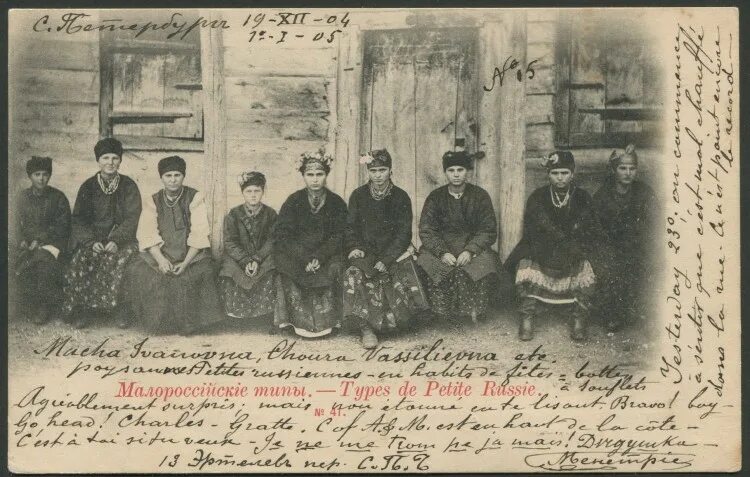 С. Петербургъ 19-XII-04
1º-I-05
No 15
Macha Ivanovna, Choura Vassilievna etc.
paysannes Petites russiennes - en habits de fêtes - bottes
à soufflets
Малороссійскіе типы. — Types de Petite Russie.
№ 41.
Agréablement surpris, mais non étonné en te lisant. Bravo! boy-
Go head! Charles - Gratte. C of A & M. est en haut de la côte -
C'est à toi si tu veux - Je ne me trompe jamais!
13 Эртелевъ пер. С.П.Б
Yesterday 23º. on commence
à sentir que c'est mal chauffé
dans la rue. Ce n'est point encore
le record -